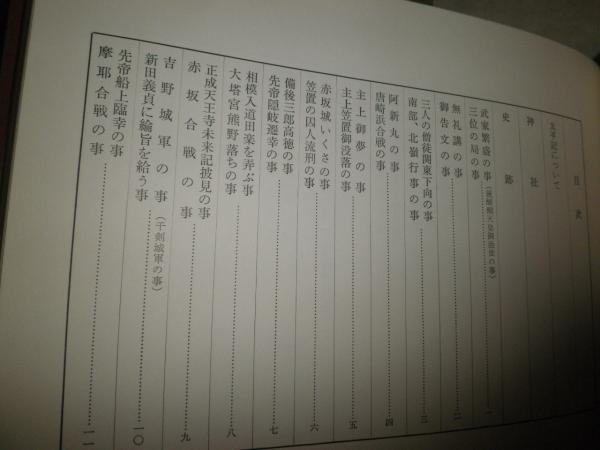 目次
太平記について
神社
史跡
武家繁盛の事(後醍醐天皇御治世の事)
三位の局の事 一
無礼講の事
御告文の事 二
三人の僧徒関東下向の事
南部、北嶺行事の事 三
阿新丸の事
唐崎浜合戦の事 四
主上御夢の事
主上笠置御没落の事 五
赤坂城いくさの事
笠置の囚人流刑の事 六
備後三郎高徳の事
先帝隠岐遷幸の事 七
相模入道田楽を弄ぶ事
大塔宮熊野落ちの事 八
正成天王寺未来記披見の事
赤坂合戦の事 九
吉野城軍の事(千剣城軍の事)
新田義貞に綸旨を給う事 一〇
先帝船上臨幸の事
摩耶合戦の事 一一